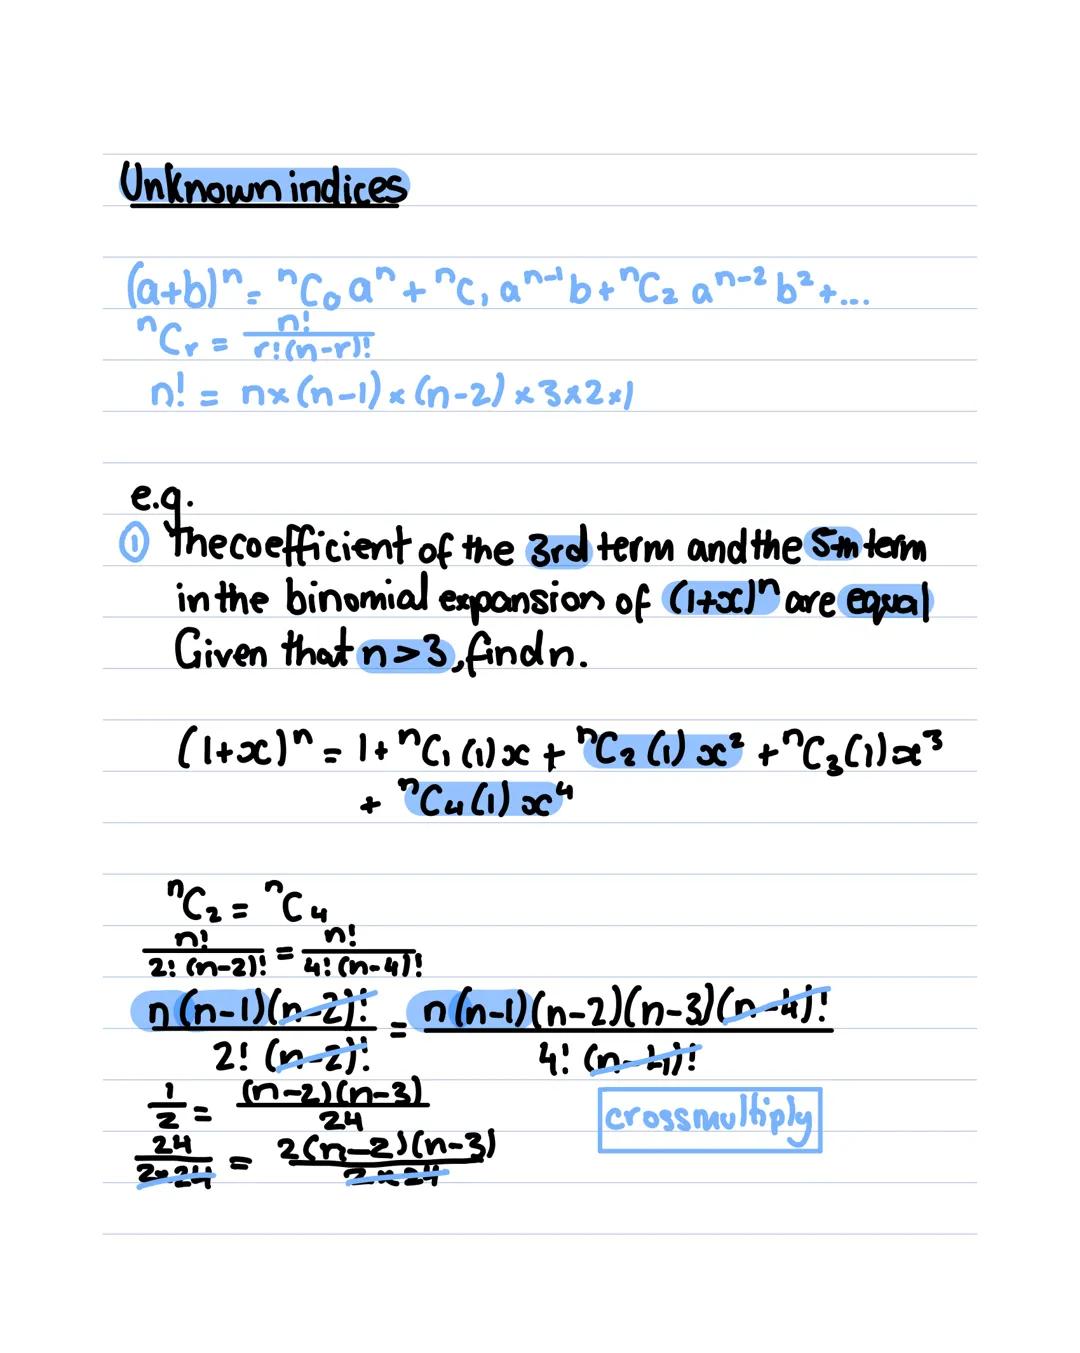 Unknown indices
(a+b)ⁿ = ⁿC₀ aⁿ + ⁿC₁ aⁿ⁻¹b + ⁿC₂ aⁿ⁻² b² + ...
ⁿCᵣ = n! / r!(n-r)!
n! = n×(n-1)×(n-2)×3×2×1
e.g.
① The coefficient of the 3rd term and the 5th term
in the binomial expansion of (1+x)ⁿ are equal
Given that n>3, find n.
(1+x)ⁿ = 1 + ⁿC₁ (1)x + ⁿC₂ (1) x² + ⁿC₃(1)x³
+ ⁿC₄(1) x⁴
ⁿC₂ = ⁿC₄
n! / 2!(n-2)! = n! / 4!(n-4)!
n(n-1)(n-2)! / 2! (n-2)! = n(n-1)(n-2)(n-3)(n-4)! / 4! (n-4)!
1/2 = (n-2)(n-3) / 24
crossmultiply
24 / 2×24 = 2(n-2)(n-3) / 2×24